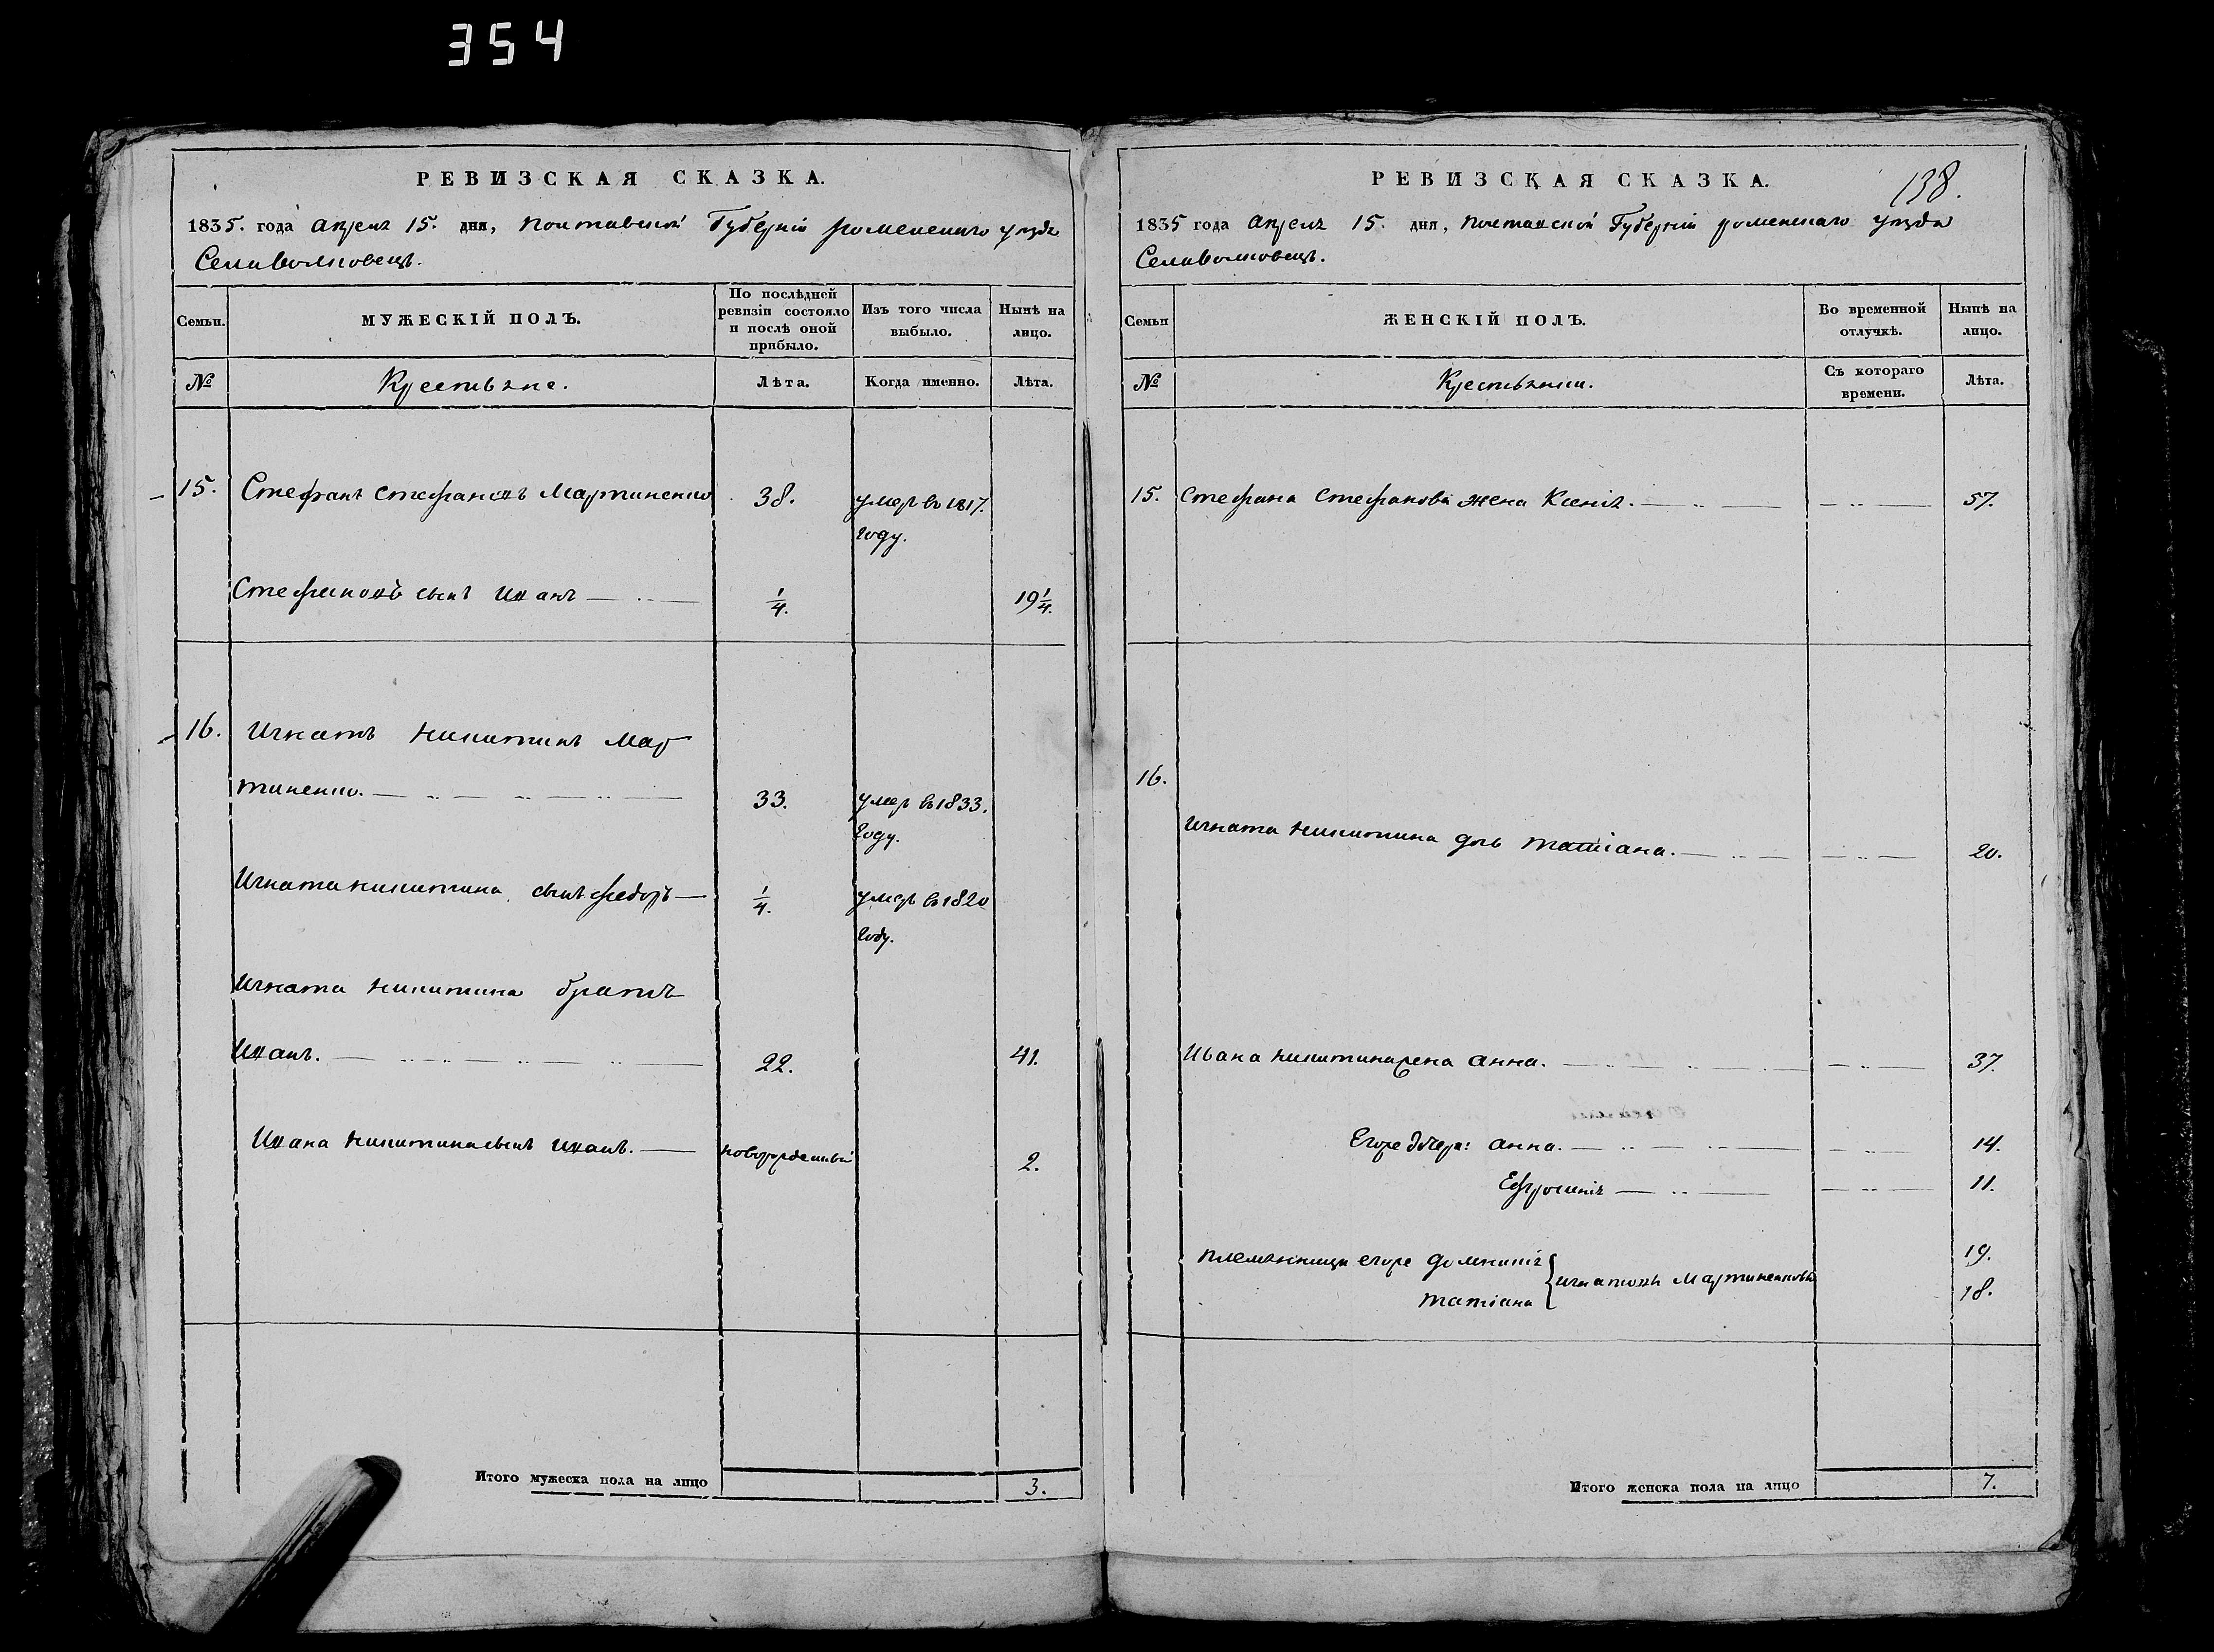 354
РЕВИЗСКАЯ СКАЗКА.
1835. года Апреля 15. дня, Полтавской Губерніи роменскаго уезда
Села Волковецъ.
Семьи.
МУЖЕСКІЙ ПОЛЪ.
По послѣдней ревизіи состояло и послѣ оной прибыло.
Изъ того числа выбыло.
Нынѣ на лицо.
№
Крестьяне.
Лѣта.
Когда именно.
Лѣта.
15. Стефанъ Стефановъ Мартиненко 38. умеръ в 1817.
году.
Стефановъ сынъ Иванъ 1/4. 19 1/4.
16. Игнатъ Никитинъ Мар
тиненко. 33. умеръ в 1833.
году.
Игната никитина сынъ федоръ 1/4. умеръ в 1820
году.
Игната Никитина братъ
Иванъ. 22. 41.
Ивана Никитина сынъ Иванъ. новорожденный 2.
Итого мужеска пола на лицо 3.
138.
РЕВИЗСКАЯ СКАЗКА.
1835 года Апреля 15. дня, Полтавской Губерніи роменскаго уезда
Села Волковецъ.
Семьи
ЖЕНСКІЙ ПОЛЪ.
Во временной отлучкѣ.
Нынѣ на лицо.
№
Крестьянки.
Съ котораго времени.
Лѣта.
15. Стефана Стефанова жена Ксенія. 57.
16.
Игната Никитина дочь Татіана. 20.
Ивана Никитина жена Анна. 37.
Егоже дочери: Анна. 14.
Ефросинія 11.
племянницы егоже Домникія 19.
Игнатовы Мартиненковы
Татіана 18.
Итого женска пола на лицо 7.